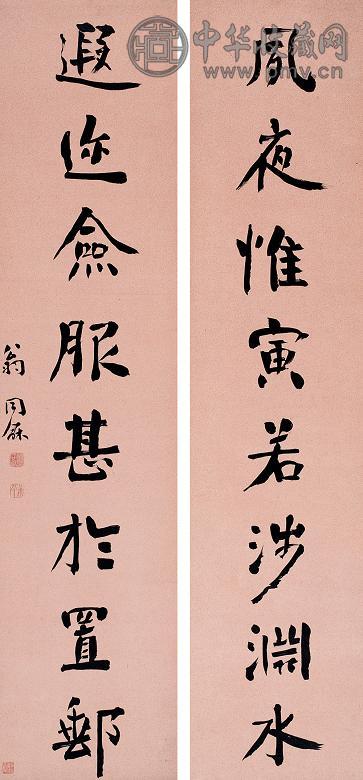 夙夜惟寅若涉淵水
遐迩僉服甚於置郵
翁同龢
中华收藏网
www.pmv.cn